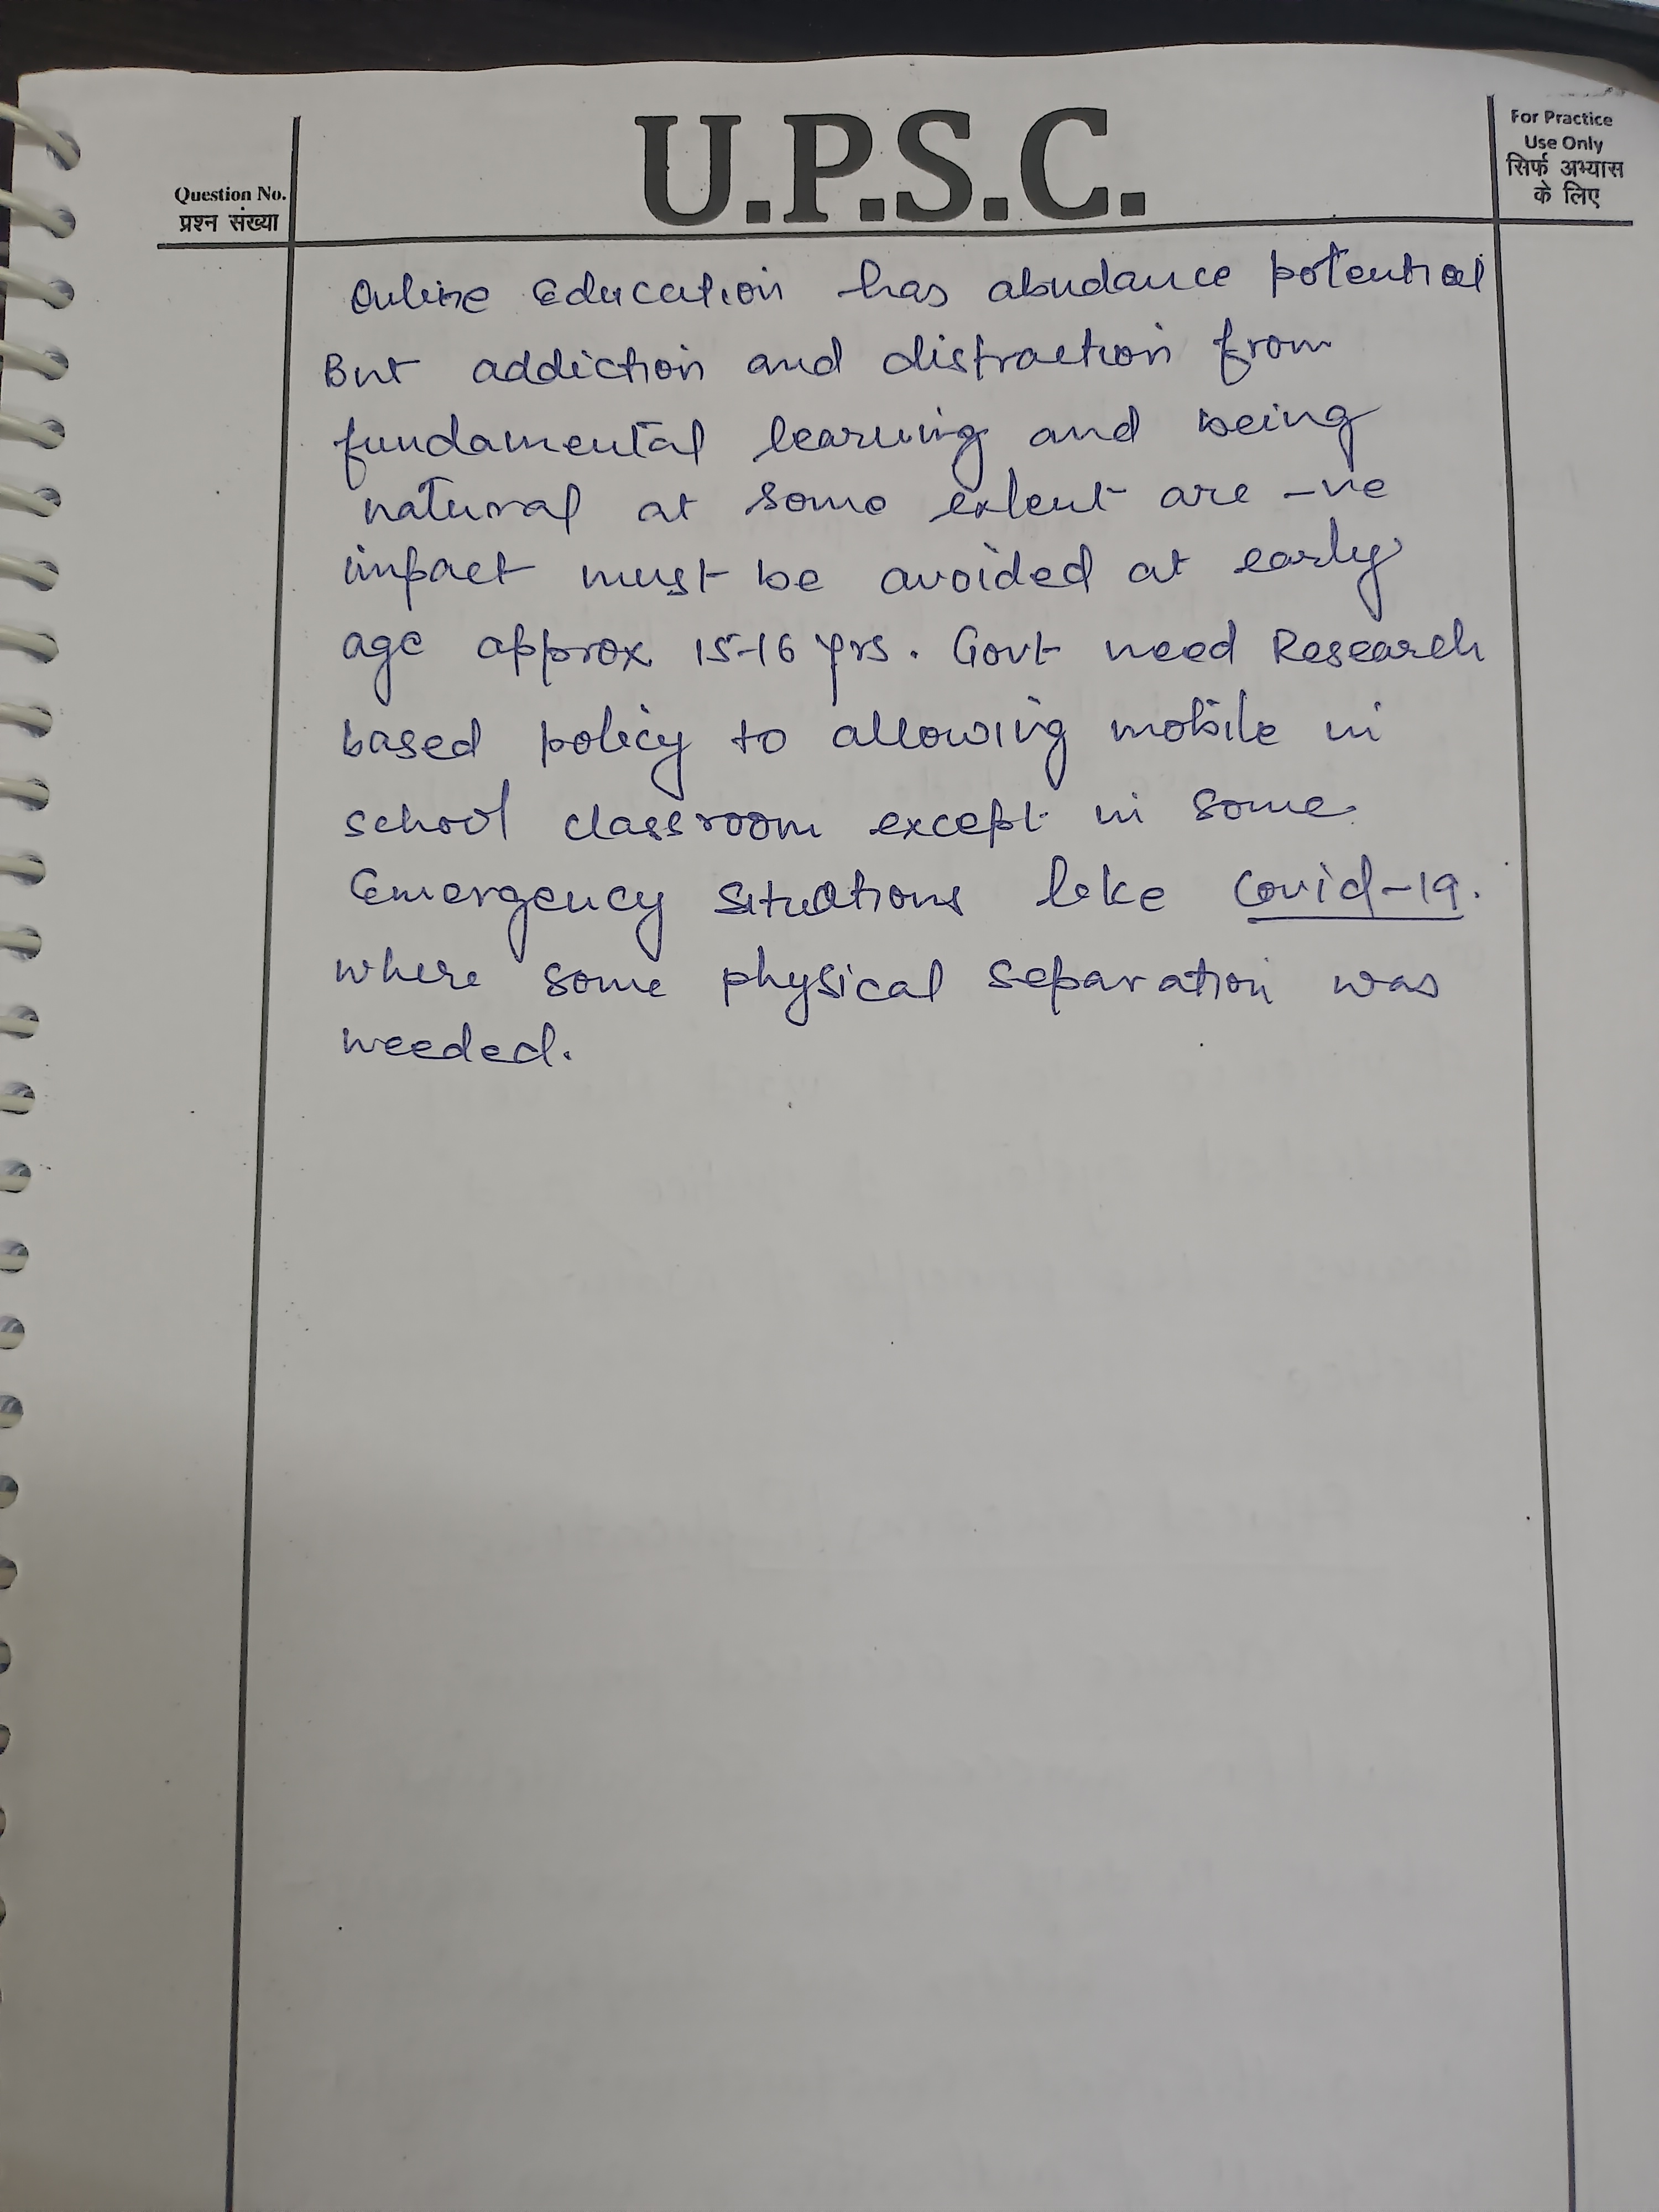 U.P.S.C.
Question No.
प्रश्न संख्या
For Practice
Use Only
सिर्फ अभ्यास
के लिए
Online Education has abudance potential
But addiction and distraction from
fundamental learning and being
natural at some extent are -ve
impact must be avoided at early
age approx 15-16 yrs. Govt need Research
based policy to allowing mobile in
school classroom except in some
Emergency situations like Covid-19.
where some physical separation was
needed.